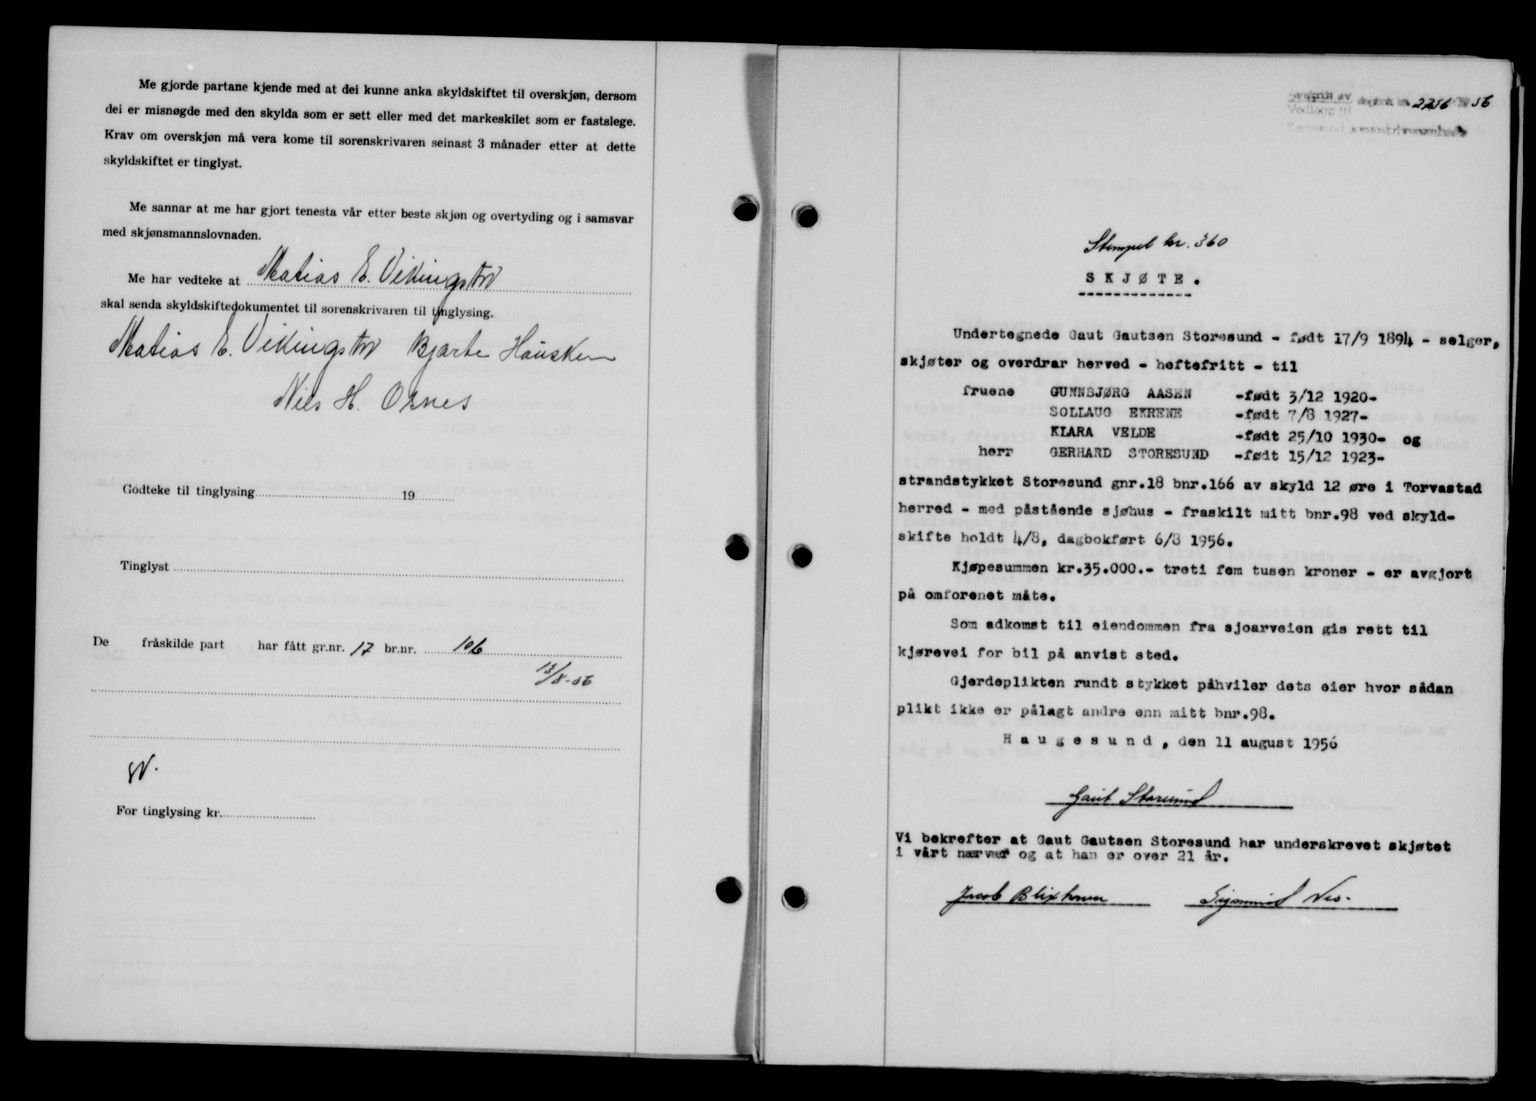 Me gjorde partane kjende med at dei kunne anka skyldskiftet til overskjøn, dersom
dei er misnøgde med den skylda som er sett eller med det markeskilet som er fastslege.
Krav om overskjøn må vera kome til sorenskrivaren seinast 3 månader etter at dette
skyldskiftet er tinglyst.
Me sannar at me har gjort tenesta vår etter beste skjøn og overtyding og i samsvar
med skjønsmannslovnaden.
Me har vedteke at Matias E. Vikingstad
skal senda skyldskiftedokumentet til sorenskrivaren til tinglysing.
Matias E. Vikingstad Bjarte Hausken
Nils H. Osnes
Godteke til tinglysing 19
Tinglyst
De fråskilde part har fått gr.nr. 17 br.nr. 106
13/8-56
W.
For tinglysing kr.
Vedlegg til dagbok nr. 2256 1956
Stempel kr. 360
SKJØTE.
Undertegnede Gaut Gautsen Storesund - født 17/9 1894 - selger,
skjøter og overdrar herved - heftefritt - til
fruene GUNNBJØRG AASEN -født 3/12 1920-
SOLLAUG EKRENE -født 7/8 1927-
KLARA VELDE -født 25/10 1930- og
herr GERHARD STORESUND -født 15/12 1923-
strandstykket Storesund gnr.18 bnr.166 av skyld 12 øre i Torvastad
herred - med påstående sjøhus - fraskilt mitt bnr.98 ved skyld-
skifte holdt 4/8, dagbokført 6/8 1956.
Kjøpesummen kr.35.000.- treti fem tusen kroner - er avgjort
på omforenet måte.
Som adkomst til eiendommen fra sjoarveien gis rett til
kjørevei for bil på anvist sted.
Gjerdeplikten rundt stykket påhviler dets eier hvor sådan
plikt ikke er pålagt andre enn mitt bnr.98.
Haugesund, den 11 august 1956
Gaut Storesund
Vi bekrefter at Gaut Gautsen Storesund har underskrevet skjøtet
i vårt nærvær og at han er over 21 år.
Jacob Blixhavn Sigmund Nes.